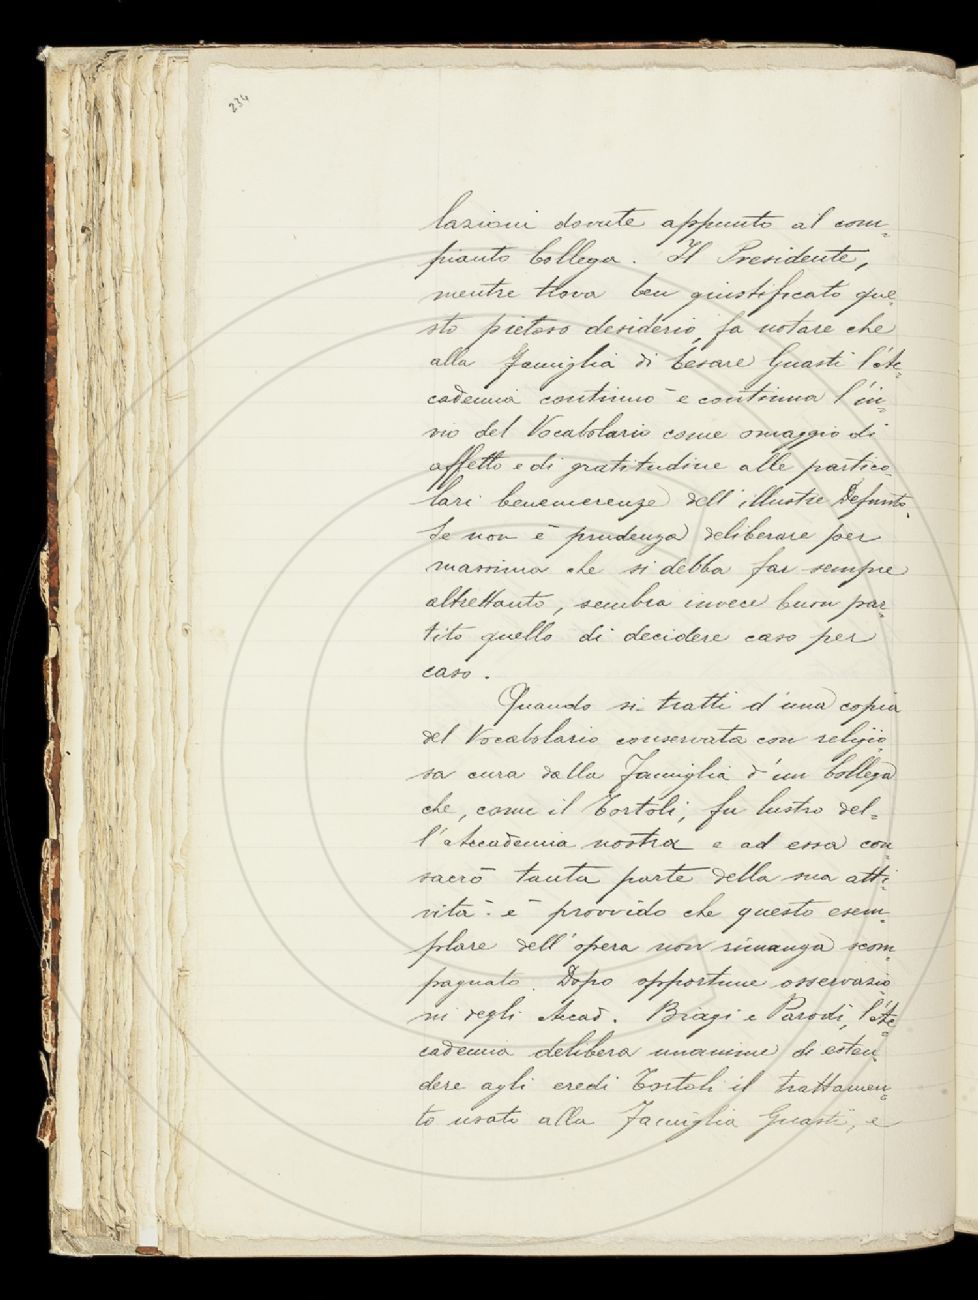 234
lazioni dovute appunto al com-
pianto Collega. Il Presidente,
mentre trova ben giustificato que-
sto pietoso desiderio, fa notare che
alla Famiglia di Cesare Guasti l'Ac-
cademia continuò e continua l'in-
vio del Vocabolario come omaggio di
affetto e di gratitudine alle partico-
lari benemerenze dell'illustre Defunto.
Se non è prudenza deliberare per
massima che si debba far sempre
altrettanto, sembra invece buon par-
tito quello di decidere caso per
caso.
Quando si tratti d'una copia
del Vocabolario conservata con religio-
sa cura dalla Famiglia d'un Collega
che, come il Tortoli, fu lustro del-
l'Accademia nostra e ad essa con-
sacrò tanta parte della sua atti-
vità: è provvido che questo esem-
plare dell'opera non rimanga scom-
pagnato. Dopo opportune osservazio-
ni degli Accad. Biagi e Parodi, l'Ac-
cademia delibera unanime di esten-
dere agli eredi Tortoli il trattamen-
to usato alla Famiglia Guasti, e